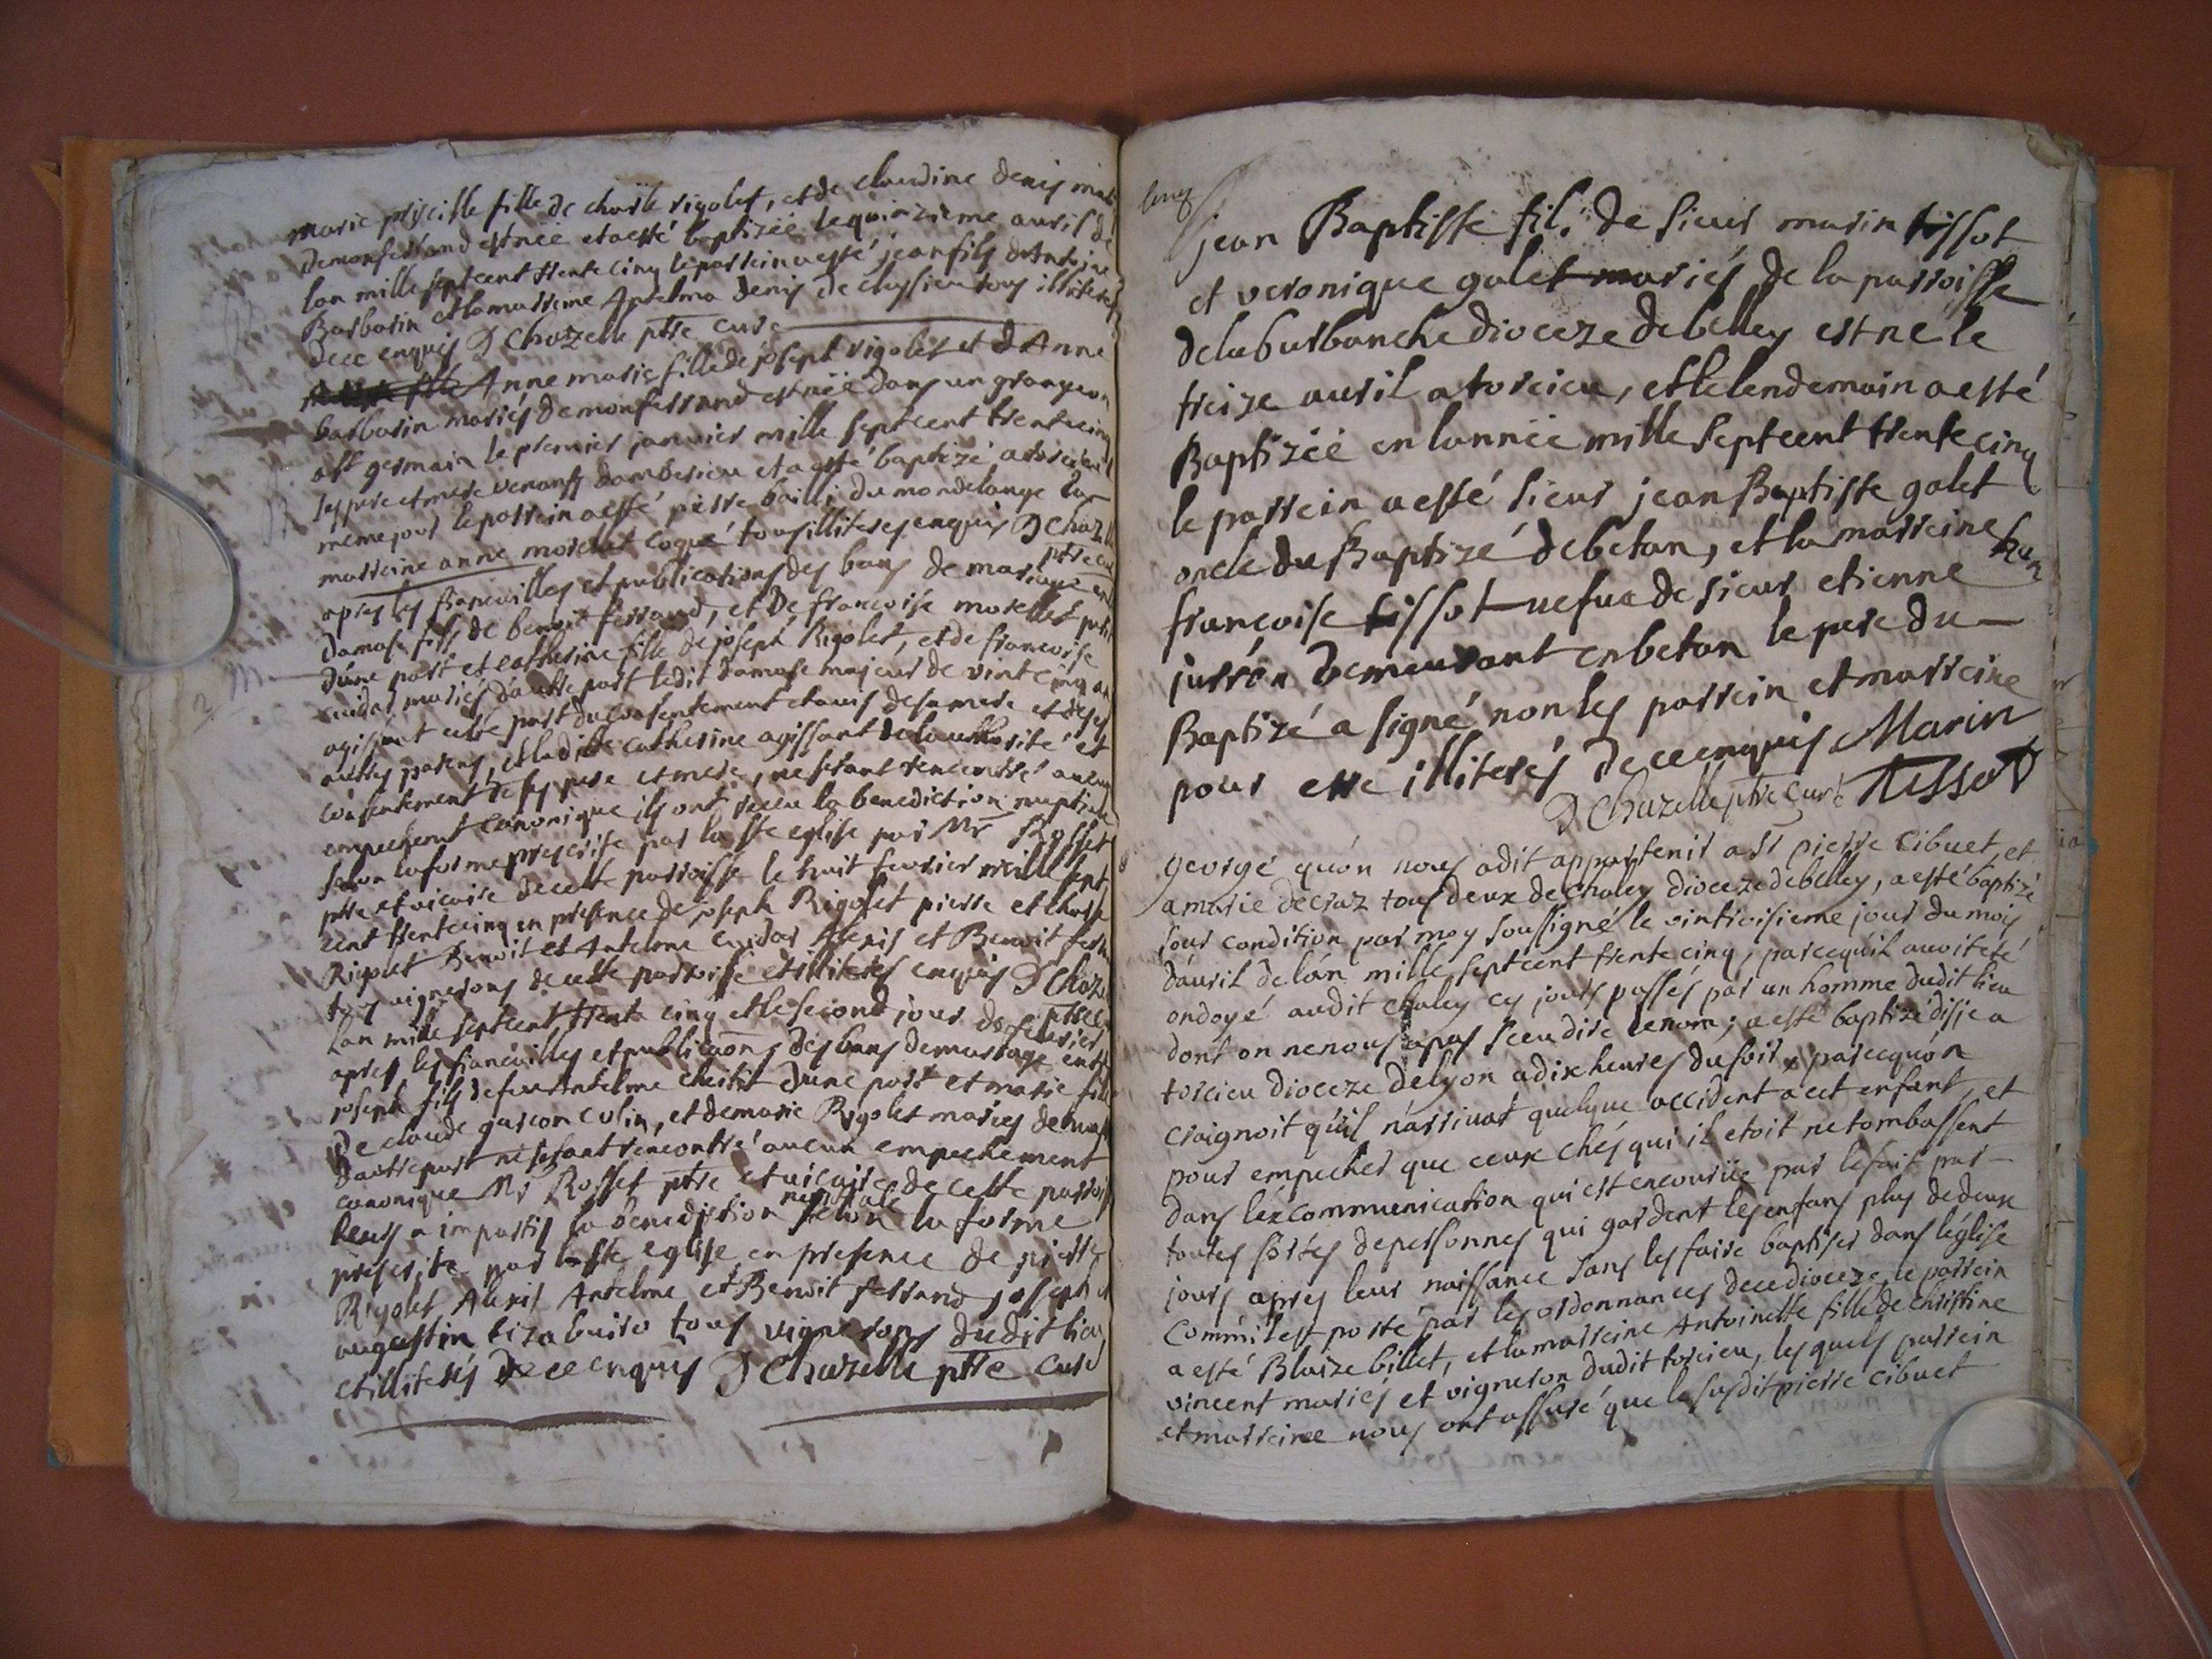 marie priscille fille de charle rigolet, et de claudine denis
demonferrand est née et a esté baptizée le quinzieme auril de
lan mille septcent trente cinq le parrein a esté jean fils dAntoine
Barbarin et la marreine Antelma denis de cleysieu tous illiterés
dece enquis D Chazelle ptre curé
Anne marie fille de joseph rigolet et d Anne
barbarin mariés demonferrand est née dans un grangeon
a st germain le premier januier mille septcent trente cinq
ses pere et mere venants dambesieu et a esté baptizé a torcieu
meme jour le parrein a esté pierre bailli du mondelange la
marreine anne morellet coqué tous illiterés enquis D Chazelle
ptre curé
apres les fiancailles et publications des bans de mariage entre
damase fils de benoit ferrand, et de francoise morellet
dune part et catherine fille de joseph Rigolet, et de francoise
cuidat mariés dautre part ledit damase majeur de vint cinq ans
agissant outre part du consentement et auis de sa mere et de ses
autres parens, et ladite catherine agissant de lauthorité et
consentement de ses pere et mere, ne setant rencontré aucun
empechemt canonique ils ont receu la benediction nuptiale
selon la forme prescrite par la ste eglise par Mr Rosset
ptre et vicaire de cette parroisse le huit feurier mille sept
cent trente cinq en presence de joseph Rigolet pierre et
Rigolet Benoit et Antelme cuidat Alexis et Benoit
tous vignerons de cette parroisse et illiterés enquis D Chazelle
ptre curé
Lan mille septcent trente cinq et le second jour de feurier
apres les fiancailles et publicaons des bans de mariage entre
joseph fils de feu Antelme dune part et marie fille
de claude garcon colin, et de marie Rigolet mariés
dautre part ne setant rencontré aucun empechement
canonique Mr Rosset ptre et vicaire de cette parroisse
leurs a imparti la benediction nuptiale selon la forme
prescrite par la ste eglise en presence de pierre
Rigolet Alexis Antelme et Benoit ferrand joseph et
augustin tous vignerons dudit lieu
et illiterés de ce enquis D Chazelle ptre curé
jean Baptiste fils de sieur marin tissot
et veronique galet mariés de la parroisse
de la burbanche dioceze de belley est né le
treize auril a torcieu, et le lendemain a esté
Baptizéé en lannéé mille septcent trente cinq
le parrein a esté sieur jean Baptiste galet
oncle du Baptizé de betan, et la marreine
francoise tissot uefue de sieur etienne
jurrón demeurant en betan le pere du
Baptizé a signé non les parrein et marreine
pour etre illiterés de ce enquis Marin
D Chazelle ptre curé Tissot
george quón nous a dit appartenir a sr pierre Cibuet et
a marie decraz tous deux de chaley dioceze de belley, a esté baptizé
sous condition par moy soussigné le vintroisieme jour du mois
dáuril de lán mille septcent trente cinq, parcequil auoit eté
ondoyé audit chaley ces jours passés par un homme dudit lieu
dont on ne nous a pas sceu dire le nom; a esté baptizé disje a
torcieu dioceze de lyon a dix heures du soir, parcequón
craignoit qúil nárriuat quelque accident a cet enfant, et
pour empecher que ceux chés qui il etoit ne tombassent
dans léxcommunication qui est encouriie par le fait par
toutes sórtes de personnes qui gardent les enfans plus de deux
jours apres leur naissance sans les faire baptiser dans léglise
comm'il est porté par les ordonnances de ce dioceze, le parrein
a esté Blaize billet, et la marreine Antoinette fille de christine
vincent mariés et vigneron dudit torcieu, lesquels parrein
et marreine nous ont assuré que le susdit pierre Cibuet